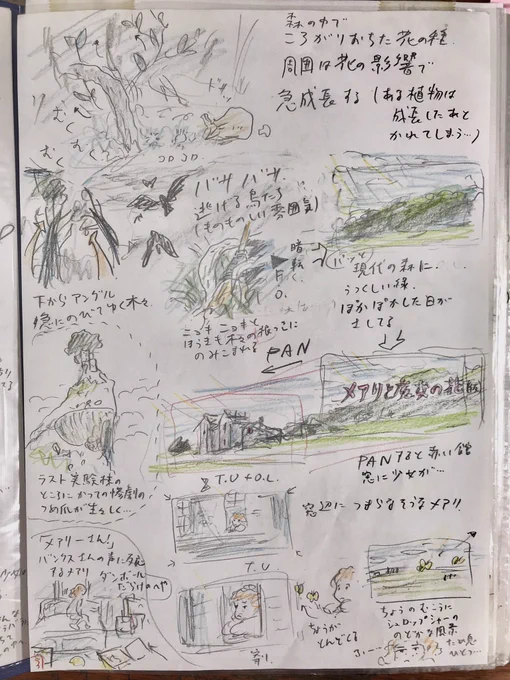 森の中で
ころがりおちた花の種
周囲は花の影響で
急成長する(ある植物は
成長したあと
かれてしまう…)
ドッ
むく
むく
コロコロ
バサバサ
逃げる鳥たち
(ものものしい雰囲気)
暗転
F.O.
下からアングル
急にのびてゆく木々
ニョキニョキと
ほうきも木々の根っこに
のみこまれる
(パッと)
現代の森に
うつくしい緑
ぽかぽかした日が
さしてる
PAN
メアリと魔女の花
PANすると赤い館
窓に少女が…
T.U+O.L
窓辺につまらなそうなメアリ
T.U
ラスト実験棟の
ところにかつての惨劇の
つめ爪が生々しく…
「メアリーさん!」
バンクスさんの声に反応
するメアリ
ダンボール
だらけのへや
ちょうが
とんでくる
ちょうのむこうに
シュロップシャーの
のどかな風景
ふぃー
ため息
ひとつ…